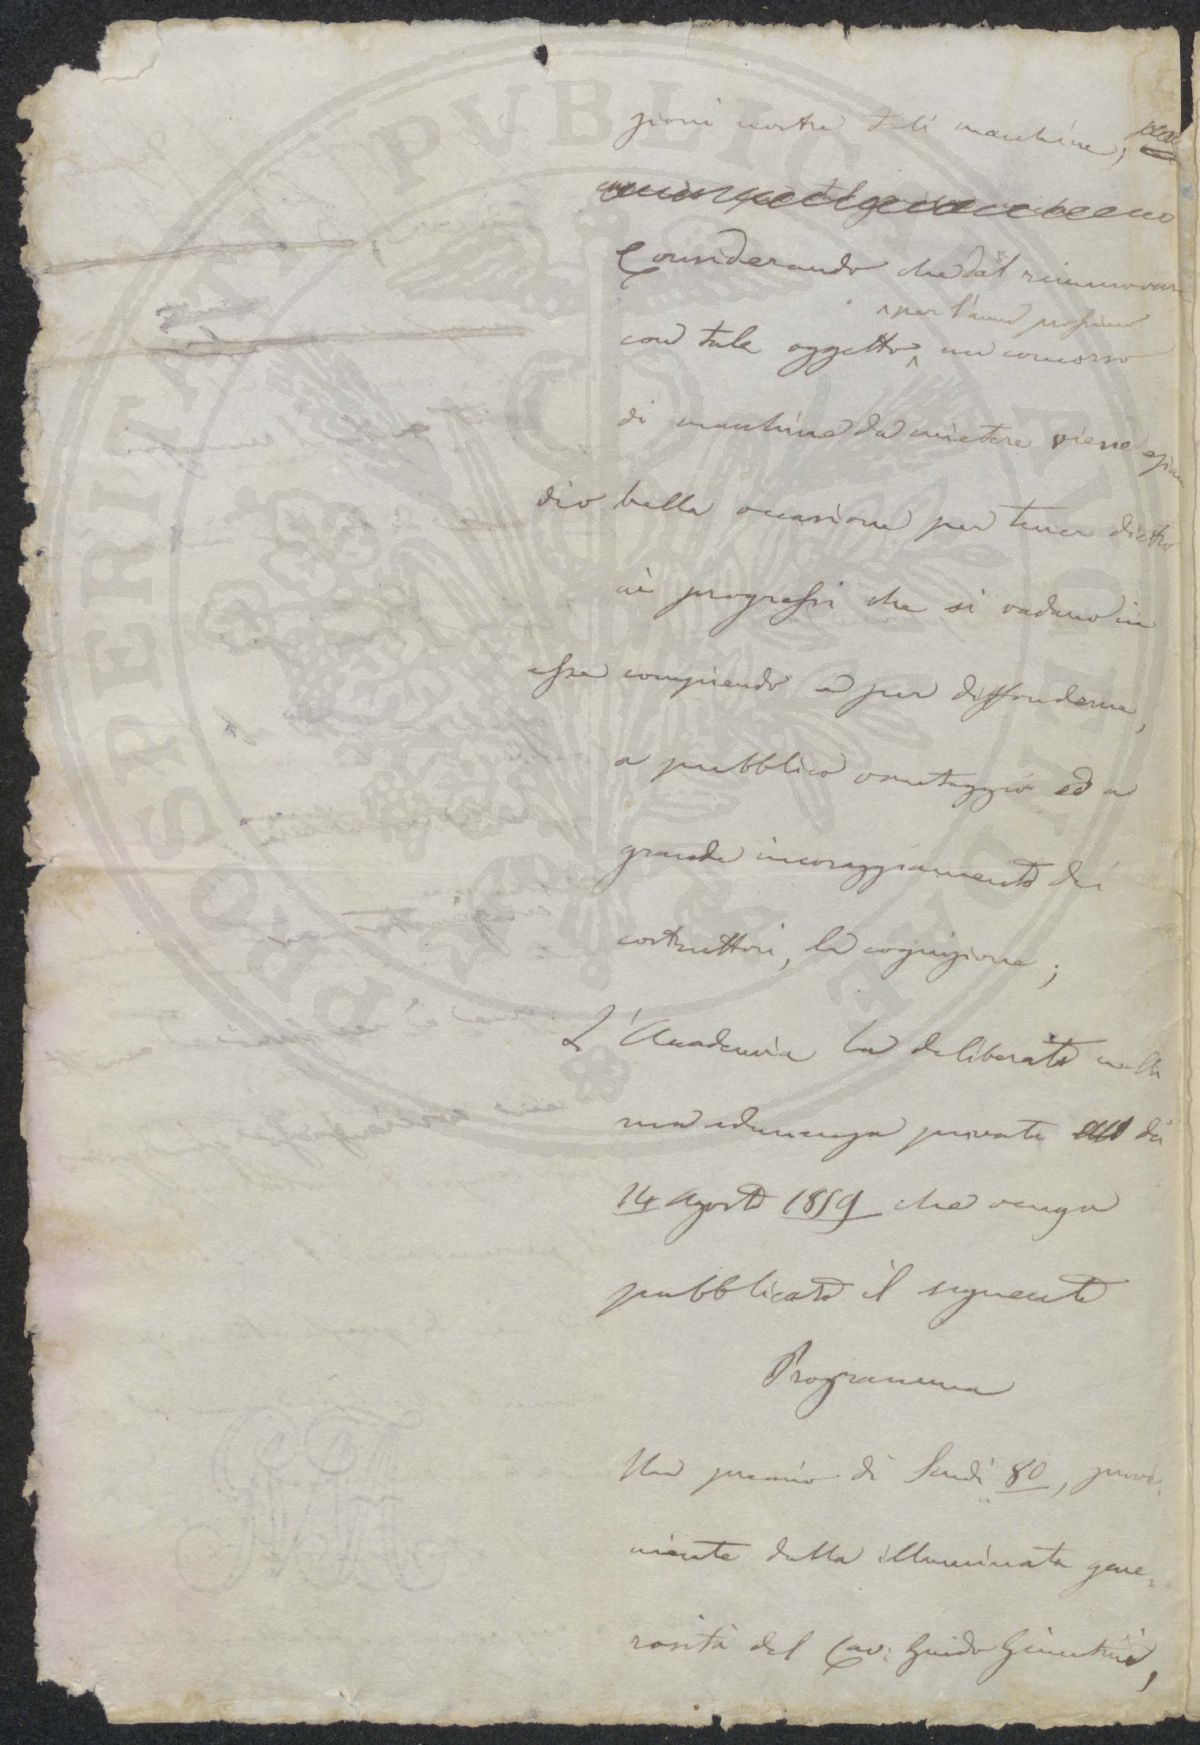 zioni nostre tali macchine;
Considerando che dal rinnovare
^ per l'anno prossimo
con tale oggetto ^ un concorso
di macchine da mietere viene ezian
dio bella occasione per tener dietro
ai progressi che si vadano in
esse compiendo e per diffonderne,
a pubblico vantaggio ed a
grande incoraggiamento dei
costruttori, la cognizione;
L'Accademia ha deliberato nella
sua adunanza privata de'
14 Agosto 1859 che venga
pubblicato il seguente
Programma
Un premio di Scudi 80, prove,
niente dalla illuminata gene,
rosità del Cav: Guido
PROSPERITATI PVBLICAE